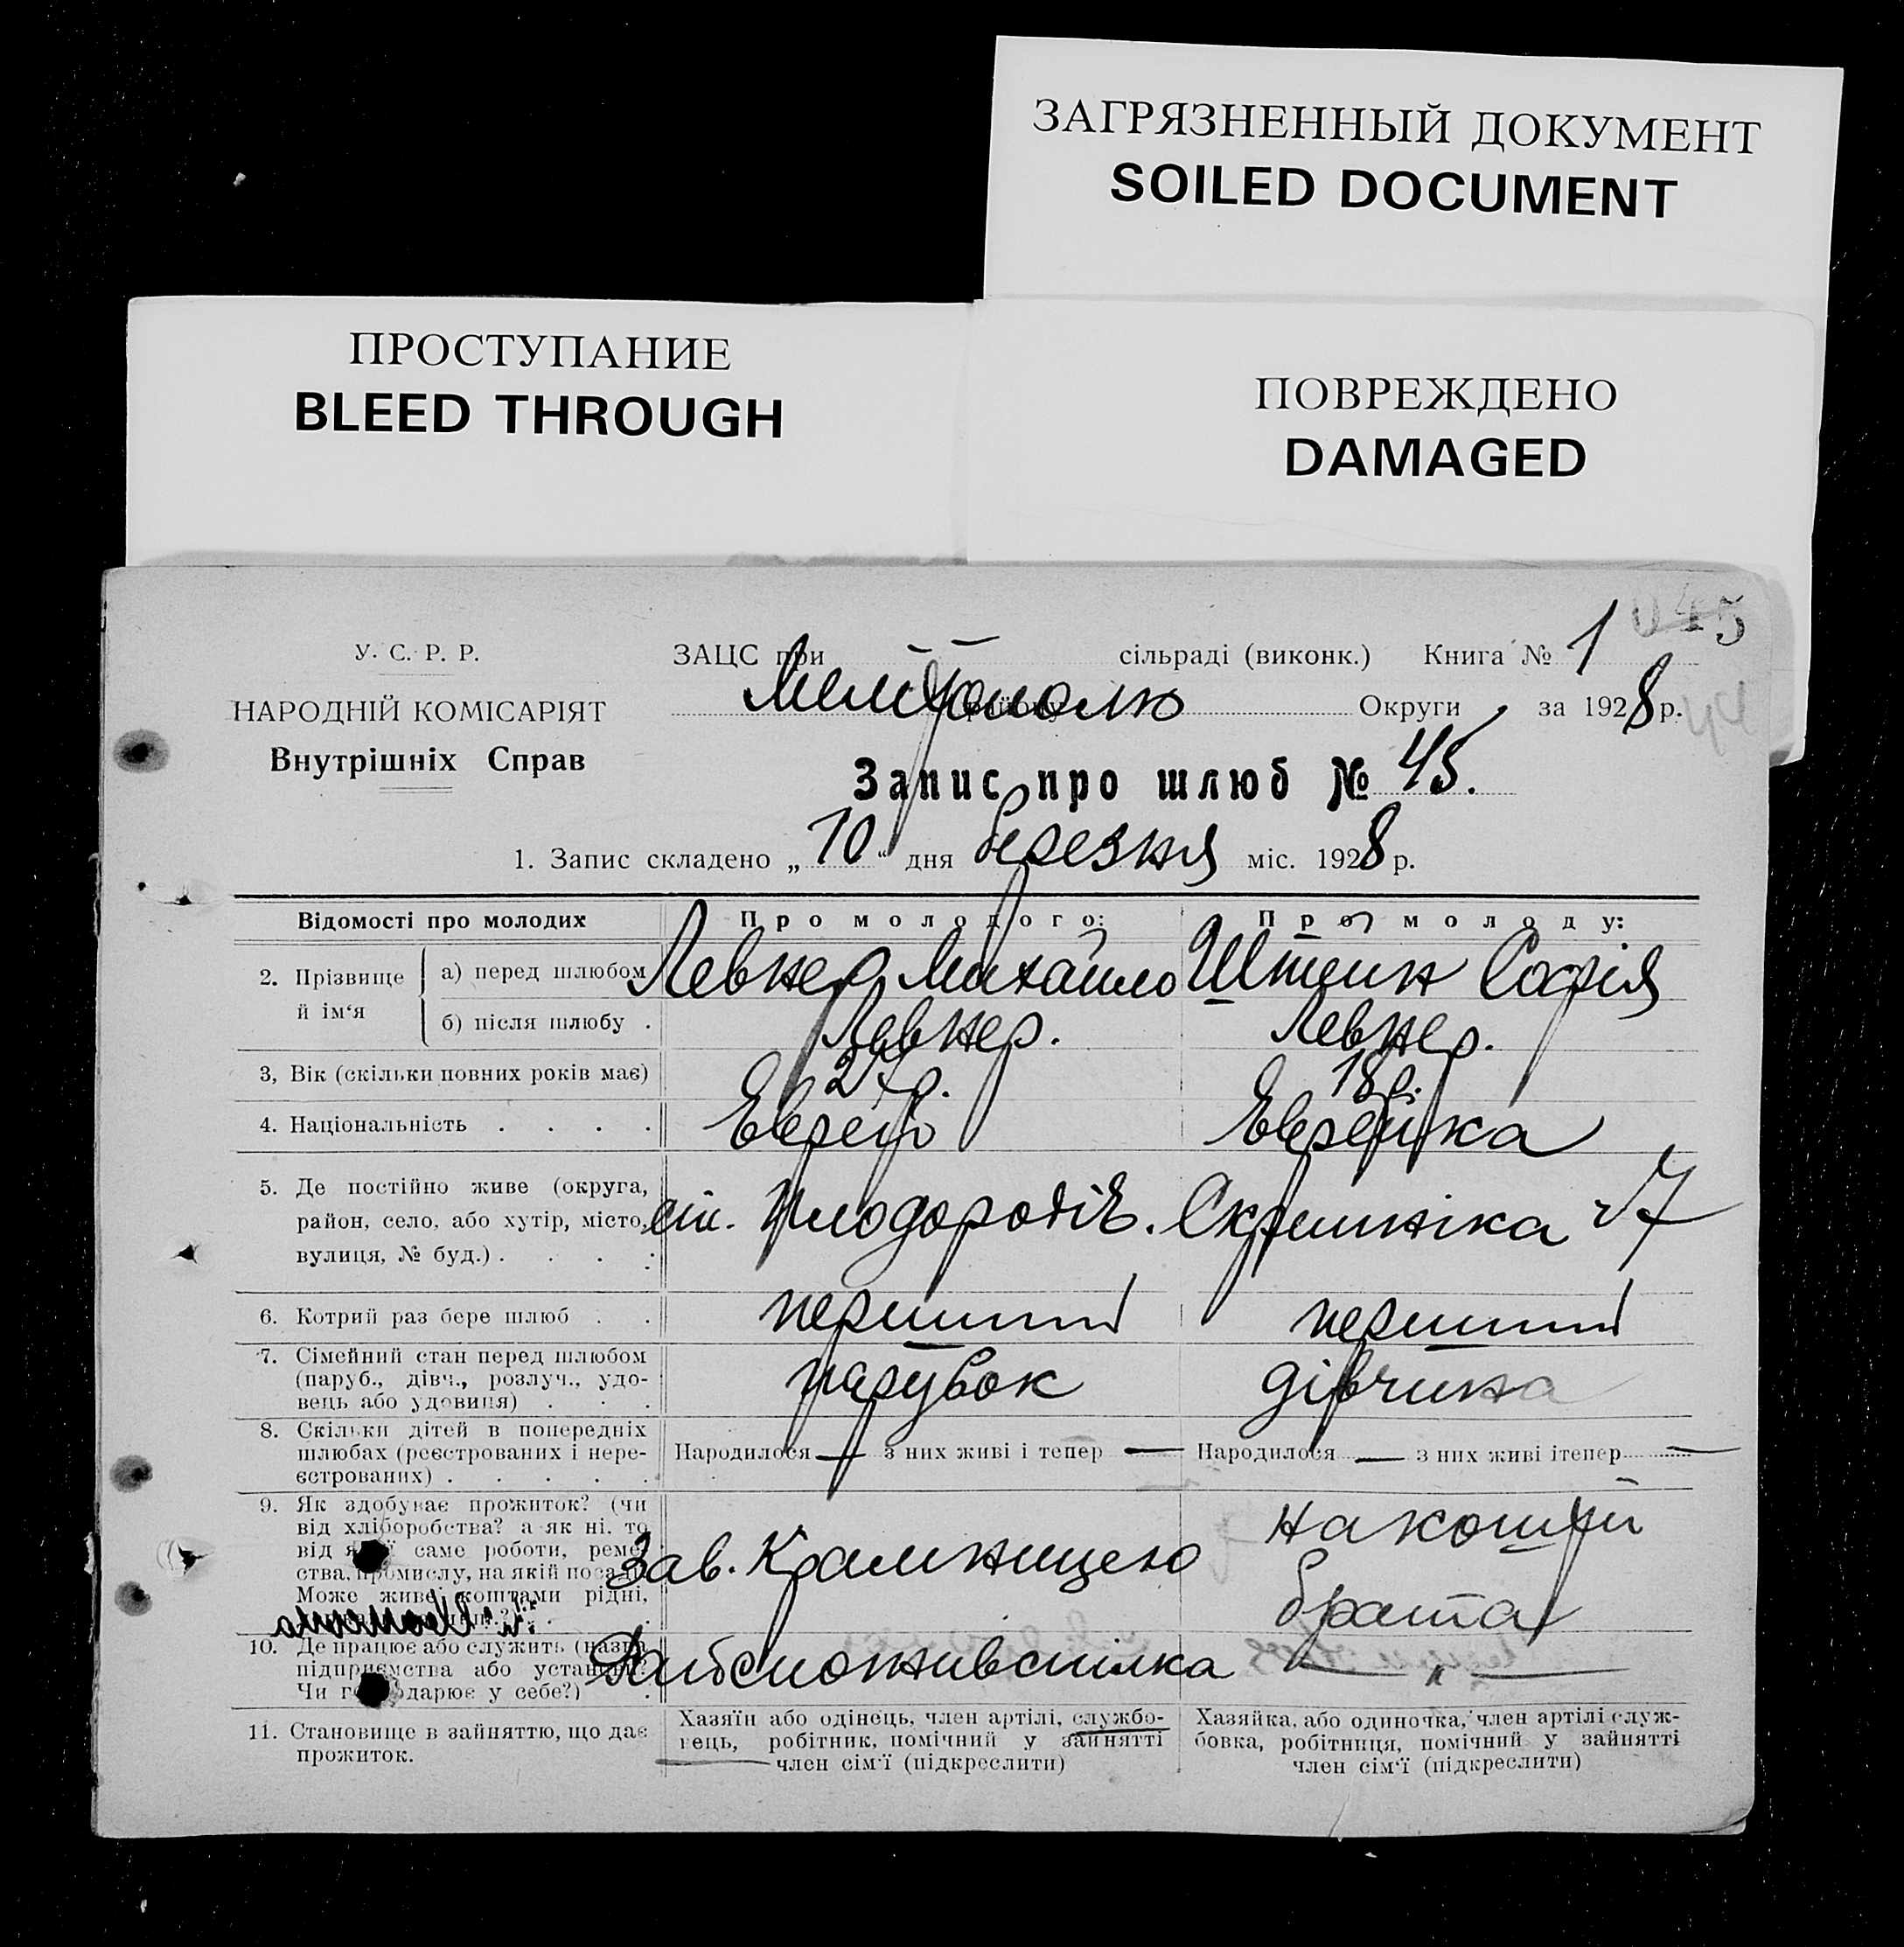 ЗАГРЯЗНЕННЫЙ ДОКУМЕНТ
SOILED DOCUMENT
ПРОСТУПАНИЕ
BLEED THROUGH
ПОВРЕЖДЕНО
DAMAGED
045
У. С. Р. Р.
НАРОДНІЙ КОМІСАРІЯТ
Внутрішніх Справ
ЗАЦС при сільраді (виконк.) Книга № 1
Мелітополю Округи за 1928 р.
44
Запис про шлюб № 45.
1. Запис складено „10“ дня березня міс. 1928 р.
Відомості про молодих Про молодого: Про молоду:
2. Прізвище й ім‘я
а) перед шлюбом Левнер Михайло Штейн Софія
б) після шлюбу . Левнер. Левнер.
3, Вік (скільки повних років має) 27р. 18р.
4. Національність . . . . Еврей Еврейка
5. Де постійно живе (округа,
район, село, або хутір, місто,
вулиця, № буд.) . . . .
ст. Плодородіє. Скрипніка 7
6. Котрий раз бере шлюб . . перший перший
7. Сімейний стан перед шлюбом
(паруб., дівч., розлуч., удо-
вець або удовиця) . . .
парубок дівчина
8. Скільки дітей в попередніх
шлюбах (реєстрованих і нере-
єстрованих) . . . . .
Народилося — з них живі і тепер — Народилося — з них живі ітепер —
9. Як здобуває прожиток? (чи
від хліборобства? а як ні, то
від якої саме роботи, реме-
ства, промислу, на якій посаді?
Може живе коштами рідні,
Зав. Крамницею
на кошти
брата
10. Де працює або служить (назва
підприємства або установи?
Чи господарює у себе?) .
Райспоживспілка — „ —
11. Становище в зайняттю, що дає
прожиток.
Хазяїн або одінець, член артілі, службо-
вець, робітник, помічний у зайнятті
член сім‘ї (підкреслити)
Хазяйка, або одиночка, член артілі служ-
бовка, робітниця, помічний у зайнятті
член сім‘ї (підкреслити)